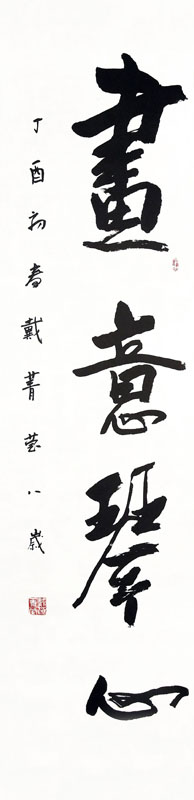 畫意琴心
丁酉初春戴菁莹八歲